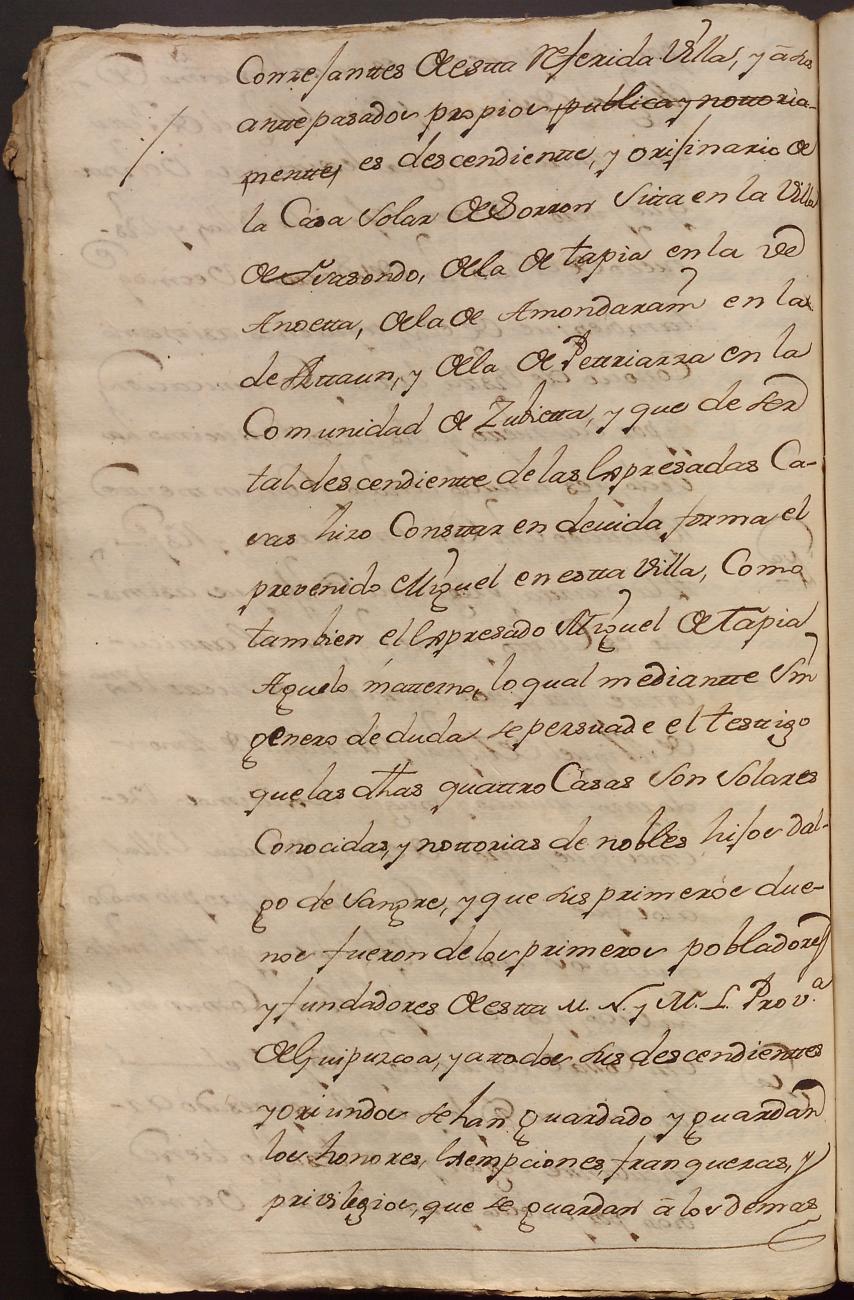 Confesantes de estta Referida Villa, y â sus
anttepasados propios publica y nottoria-
mentte, es descendientte, y orijinario de
la Casa Solar de Dorron Sitta en la Villa
de Lirasondo, de la de tapia en la de
Anoetta, de la de Amondarain en la
de Attaun, y de la de Pettriarza en la
Comunidad de Zubietta, y que de ser
tal descendientte de las Expresadas Ca-
sas hizo Consttar en devida forma el
prevenido Miguel en estta Villa, Como
tambien el Expresado Miguel de Tapia
Aguelo matterno, lo qual mediantte Sin
genero de duda se persuade el testtigo
que las dhas quattro Casas Son Solares
Conocidas, y nottorias de nobles hijos dal-
go de Sangre, y que sus primeros due-
nos fueron de los primeros pobladores
y fundadores de estta M. N. y M. L. Prov.ª
de Guipuzcoa, y a ttodos sus descendienttes
y oriundos se han guardado y guardan
los honores, Exempciones, franquezas, y
privilegios, que se guardan â los demas